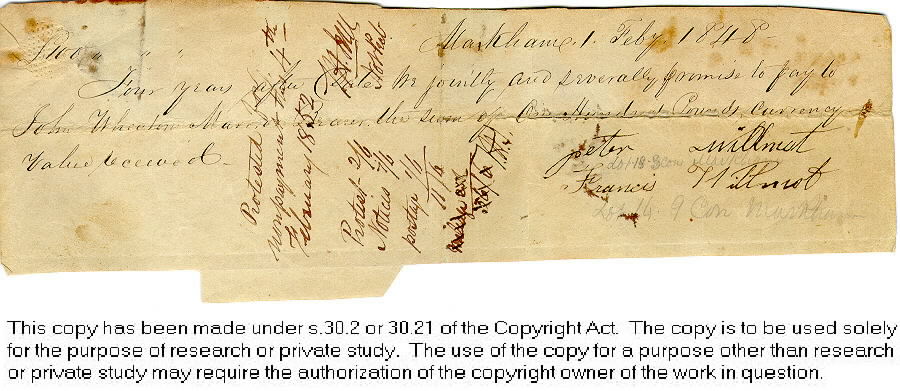 £100 " " "
Markham, 1. Feby, 1848
Four years after date We jointly and severally promise to pay to
John Wheeton or Bearer the sum of One Hundred Pounds currency
Value Received.
peter Willmot
Lot 18 8 con Markham
Francis Willmot
Lot 16. 9 Con Markham
Protested for
nonpayment this 4th
February 1852
Protest 2/6
Notices
postge
Not Pub
This copy has been made under s.30.2 or 30.21 of the Copyright Act. The copy is to be used solely
for the purpose of research or private study. The use of the copy for a purpose other than research
or private study may require the authorization of the copyright owner of the work in question.